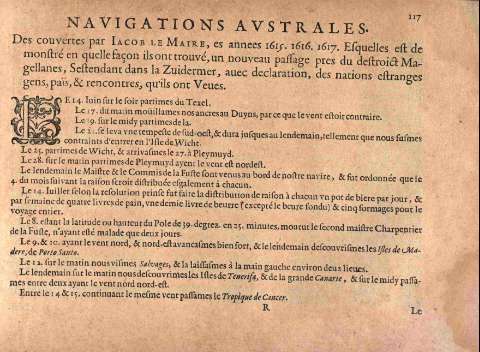 117
NAVIGATIONS AVSTRALES.
Des couvertes par IACOB LE MAIRE, es annees 1615. 1616. 1617. Esquelles est de
monstré en quelle façon ils ont trouvé, un nouveau passage pres du destroict Ma-
gellanes, Sestendant dans la Zuidermer, avec declaration, des nations estranges
gens, païs, & rencontres, qu'ils ont Veues.
LE 14. Iuin sur le soir partimes du Texel.
Le 17. du matin mouïllames nos ancres au Duyns, par ce que le vent estoit contraire.
Le 19. sur le midy partimes de la.
Le 21. se leva vne tempeste de sud-oest, & dura jusques au lendemain, tellement que nous fusmes
contraints d'entrer en l'Isle de Wicht.
Le 25. partimes de Wicht, & arrivasmes le 27. à Pleymuyd.
Le 28. sur le matin partimes de Pleymuyd ayent le vent est nordest.
Le lendemain le Maistre & le Commis de la Fuste sont venus au bord de nostre navire, & fut ordonnée que le
4. du mois suivant la raison seroit distribuée esgalement à chacun.
Le 14. Iuillet selon la resolution prinse fut faire la distribution de raison à chacun vn pot de biere par jour, &
par semaine de quatre livres de pain, vne demie livre de beurre (excepté le beurre fondu) & cinq formages pour le
voyage entier.
Le 8. estant la latitude ou hauteur du Pole de 39. degrez. en 25. minutes, mourut le second maistre Charpentier
de la Fuste, n'ayant esté malade que deux jours.
Le 9. & 10. ayant le vent nord, & nord-est avancasmes bien fort, & le lendemain descouvrismes les Isles de Ma-
dere, de Porto Santo.
Le 12. sur le matin nous vismes Salvages, & la laissasmes à la main gauche environ deux lieues.
Le lendemain sur le matin nous descouvrimes les Isles de Tenerifa, & de la grande Canarie, & sur le midy passa-
mes entre deux ayant le vent nord nord-est.
Entre le 14 & 15. continuant le mesme vent passames le Tropique de Cancer.
R
Le